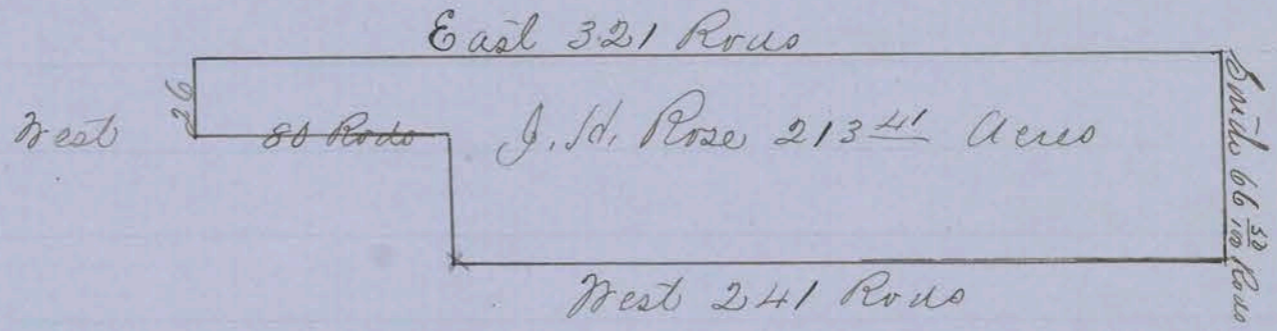 East 321 Rods
26
West 80 Rods
J. H. Rose 213 41 Acres
South 66 50/100 Rods
West 241 Rods